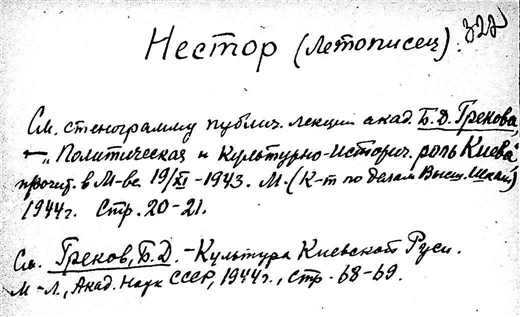 322
Нестор (Летописец).
См. стенограмму публич. лекции акад. Б.Д. Грекова,
— „Политическая и культурно-историч. роль Киева"
прочит. в М-ве 19/XI-1943. М. (К-т по делам Высш. Школ)
1944г. Стр. 20-21.
См. Греков, Б.Д. - Культура Киевской Руси.
М-Л., Акад. Наук СССР, 1944г., стр. 68-69.